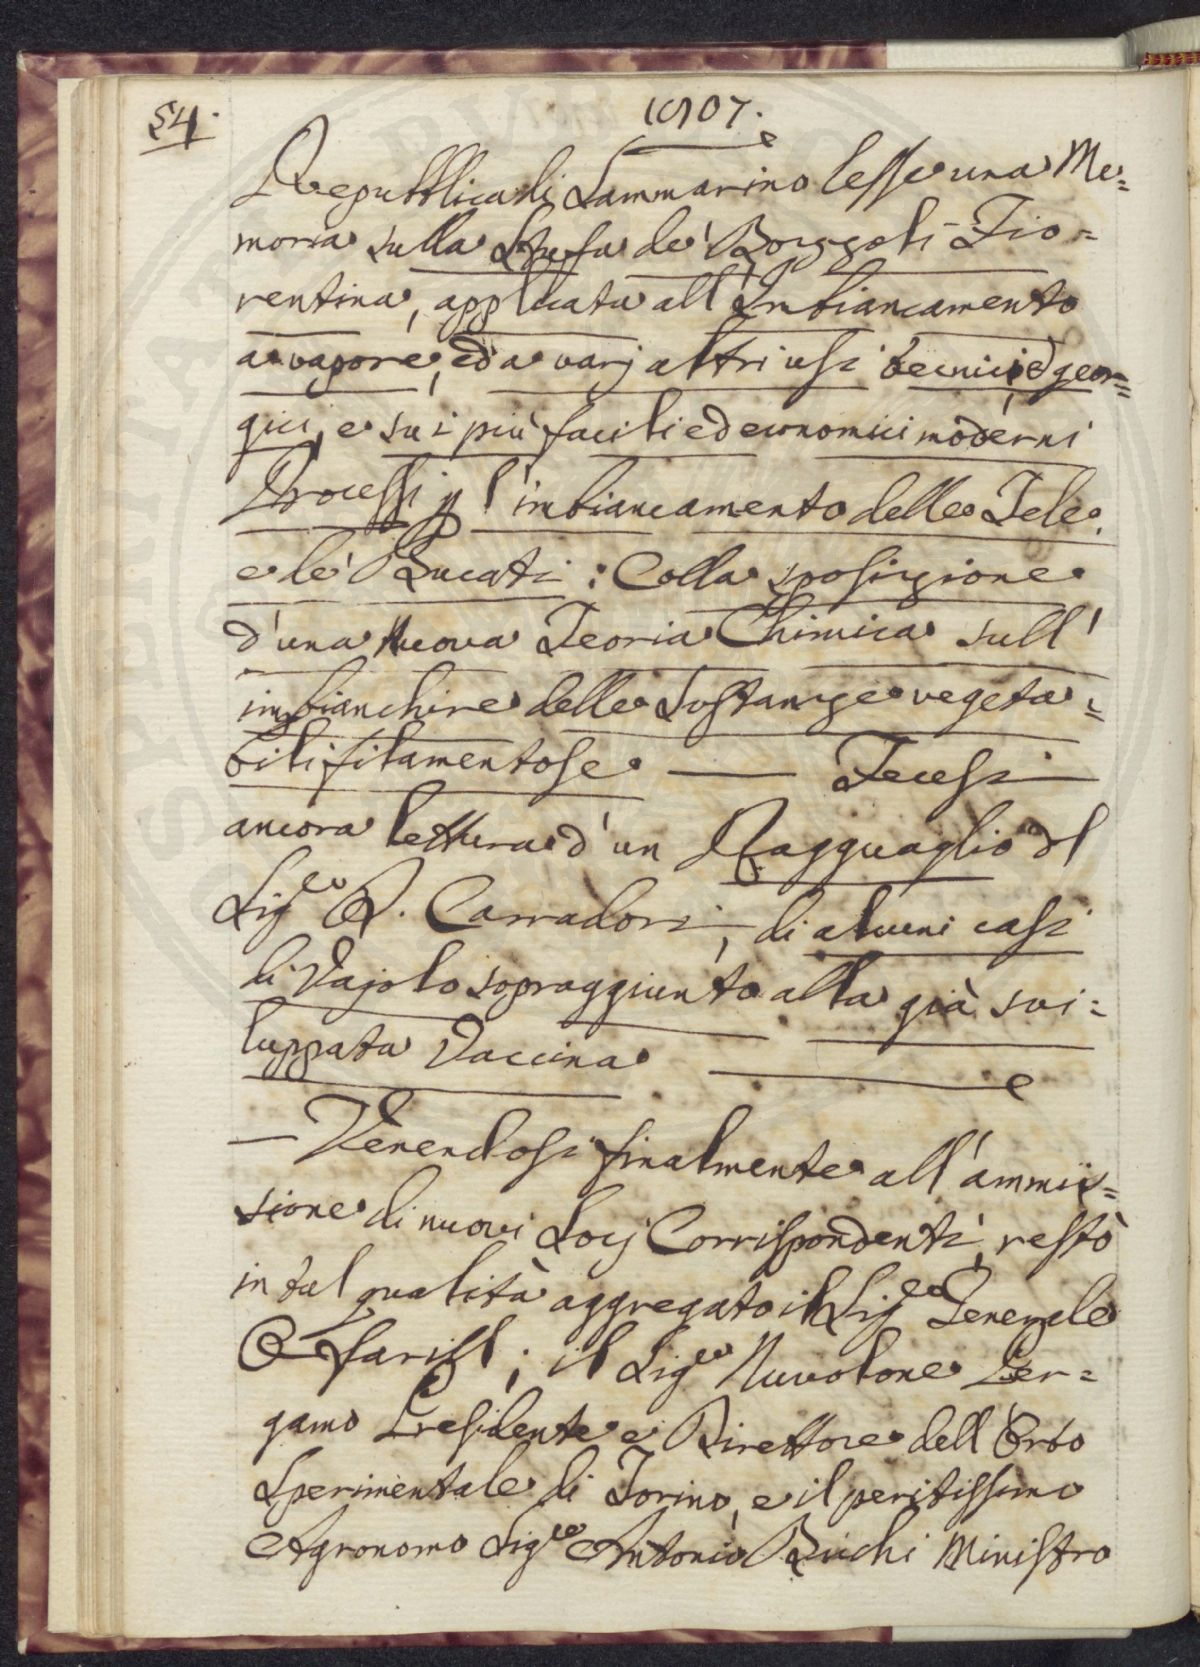 54.
1807.
Repubblica di Sammarino lesse una Me=
moria sulla Stufa de' Borggoli Fio=
rentina, applicata all'Imbiancamento
a vapore, ed a varj altri usi tecnici, e geor=
gici, e sui più facili ed economici moderni
Processi p l'imbiancamento delle Tele.
e le' Bucati: Colla sposizione
d'una Nuova Teoria Chimica sull'
imbianchire delle Sostanze vegeta=
bili filamentose — Fecesi
ancora lettura d'un Ragguaglio dl
Sig.re D. Carradori, di alcuni casi
di Vajolo sopraggiunto alla già svi=
luppata Vaccina —
— Venendosi finalmente all'ammis=
sione di nuovi Socj Corrispondenti, restò
in tal qualità aggregato il Sig.re Generale
Ofarill; il Sig.re Nuvolone Per=
gamo Presidente e Direttore dell'Orto
Sperimentale di Torino, e il peritissimo
Agronomo Sig.re Antonio Bicchi Ministro